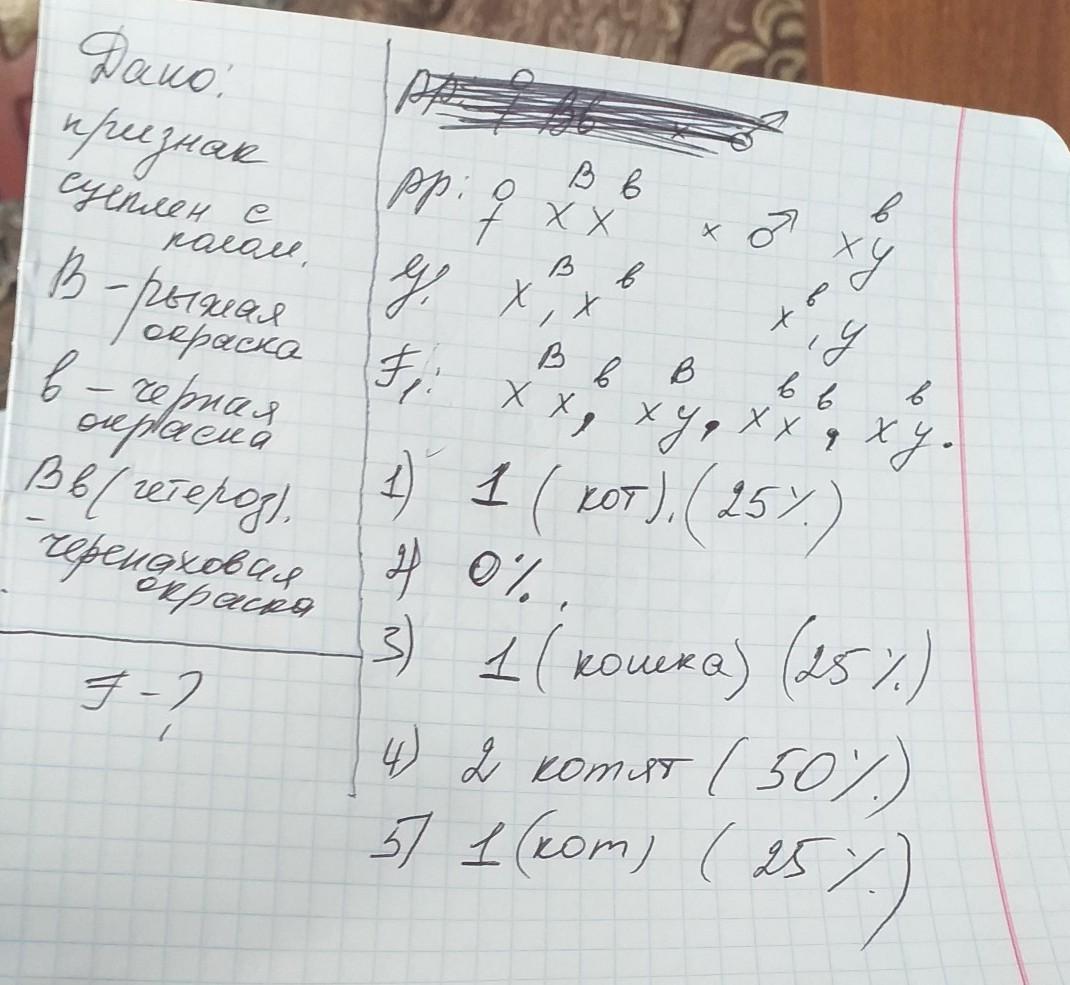 Дано:
признак
сцеплен с
полом.
В – рыжая
окраска
в – черная
окраска
Вв (гетероз).
– черепаховая
окраска
F – ?
рр: ♀ Вв × ♂
рр: ♀ XᴮXᵇ × ♂ Xᵇy
g: Xᴮ, Xᵇ Xᵇ, y
F₁: XᴮXᵇ, Xᴮy, XᵇXᵇ, Xᵇy.
1) 1 (кот). (25%)
2) 0%.
3) 1 (кошка) (25%)
4) 2 котят (50%)
5) 1 (кот) (25%)